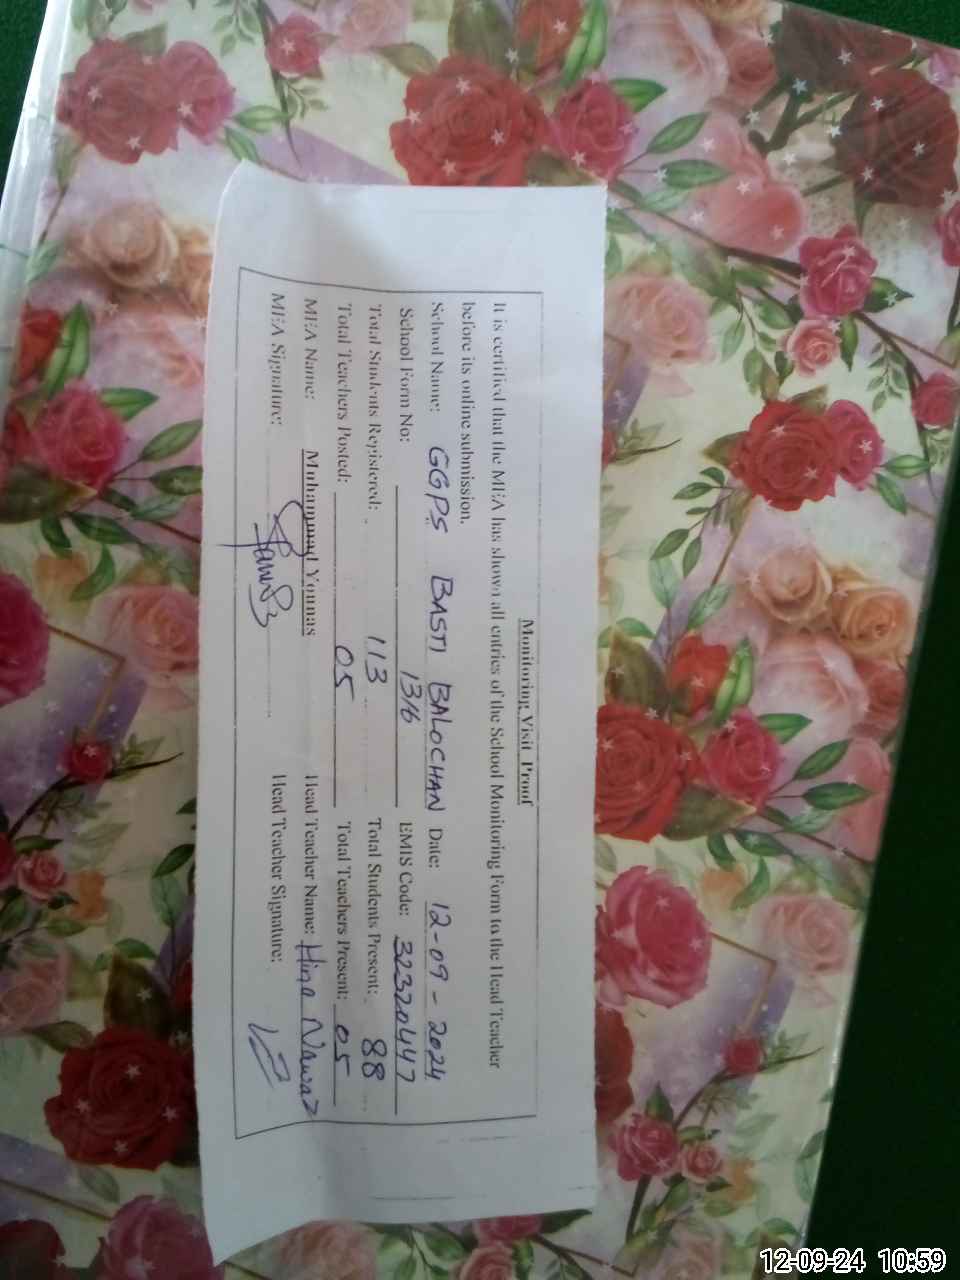 Monitoring Visit Proof
It is certified that the MEA has shown all entries of the School Monitoring Form to the Head Teacher
before its online submission.
School Name: GGPS BASTI BALOCHAN Date: 12-09-2024
School Form No: 1316 EMIS Code: 32320447
Total Students Registered: 113 Total Students Present: 88
Total Teachers Posted: 05 Total Teachers Present: 05
MEA Name: Muhammad Younas Head Teacher Name: Hina Nawaz
MEA Signature: Head Teacher Signature:
12-09-24 10:59